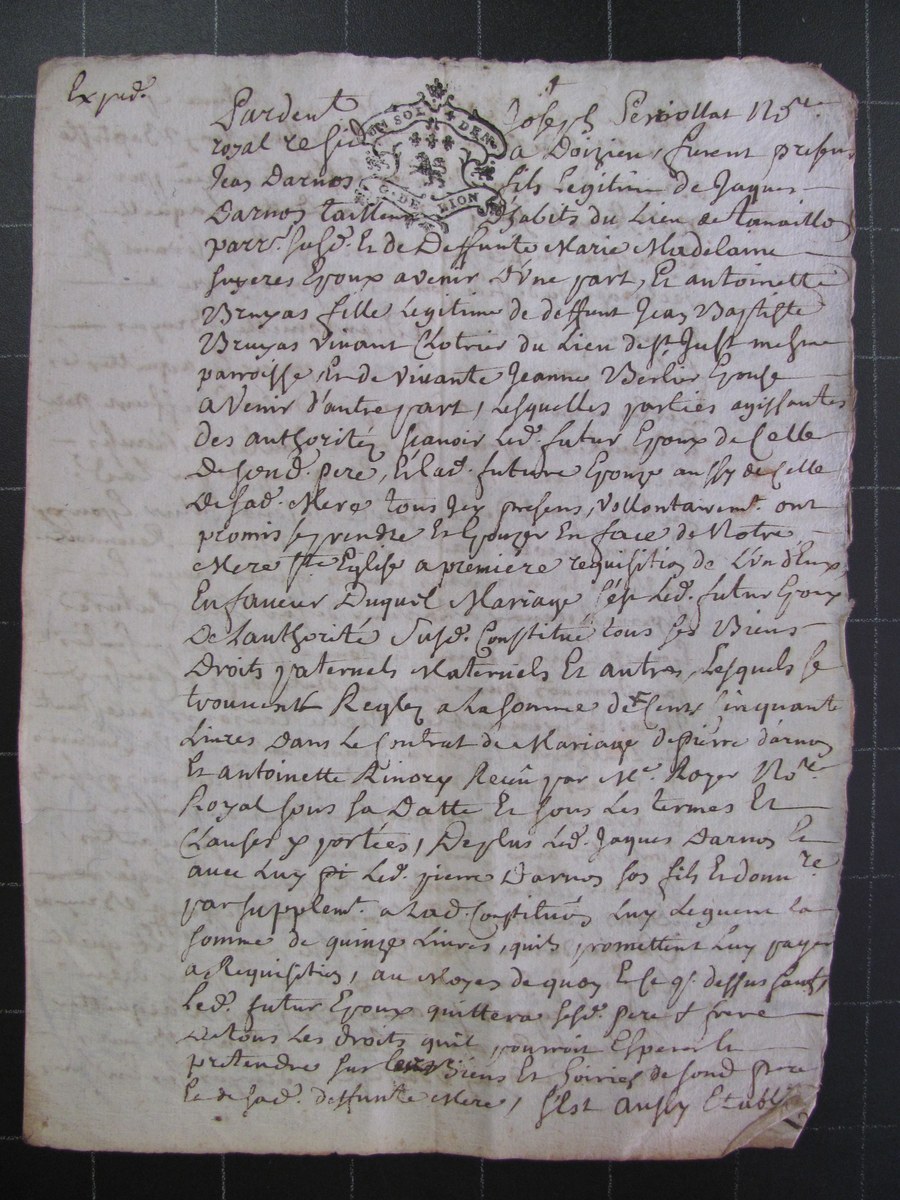 Expéd.
Pardevt Joseph Perriollat No.re
royal resid a Doizieu, furent presens
Jean Darnos fils Legitime de Jaques
Darnos tailleur D'habits du Lieu de
parr. susd. Et de Deffunte Marie Madelaine
Epoux avenir d'Une part, Et antoinette
Bruyas fille Légitime de deffunt Jean Baptiste
Bruyas vivant Clotrier du Lieu de st Just mesme
parroisse, Et de vivante Jeanne Berlier Epouse
avenir d'autre part, Lesquelles parties agissantes
des authoritéz scavoir Led. futur Epoux de Celle
de sond. pere, Et Lad. future Epouze aussy de Celle
de sad. Mere tous Icy presens, vollontairemt. ont
promis se prendre et Epouzer En face de Notre
Mere ste Eglise a premiere requisition de L'un d'Eux
En faveur Duquel Mariage s'est Led. futur Epoux
de L'authorité Susd. Constitué tous ses Biens
Droits paternels Maternels Et autres, Lesquels se
trouvent Reglez a La somme de Cent Cinquante
Livres Dans Le Contrat de Mariage de Pierre darnos
Et antoinette Reçeu par Me. Royer No.re
Royal sous sa Datte Et sous Les termes Et
Clauses y portées, De plus Led. Jaques Darnos Et
avec Luy Led. pierre Darnos son fils Et donn.re
par supplemt. a Lad. Constituon Luy Leguent la
somme de quinze Livres, quils promettent Luy payer
a Requisition, au Moyen de quoy Et Ce q. dessus
Led. futur Epoux quittera sesd. pere & frere
De tous Les droits quil pourroit Esperer Et
pretendre sur Les Biens Et hoiries de sond pere
Et de sad. deffunte Mere, s'Est aussy Etably
ON SOL DEN
G. DE LION